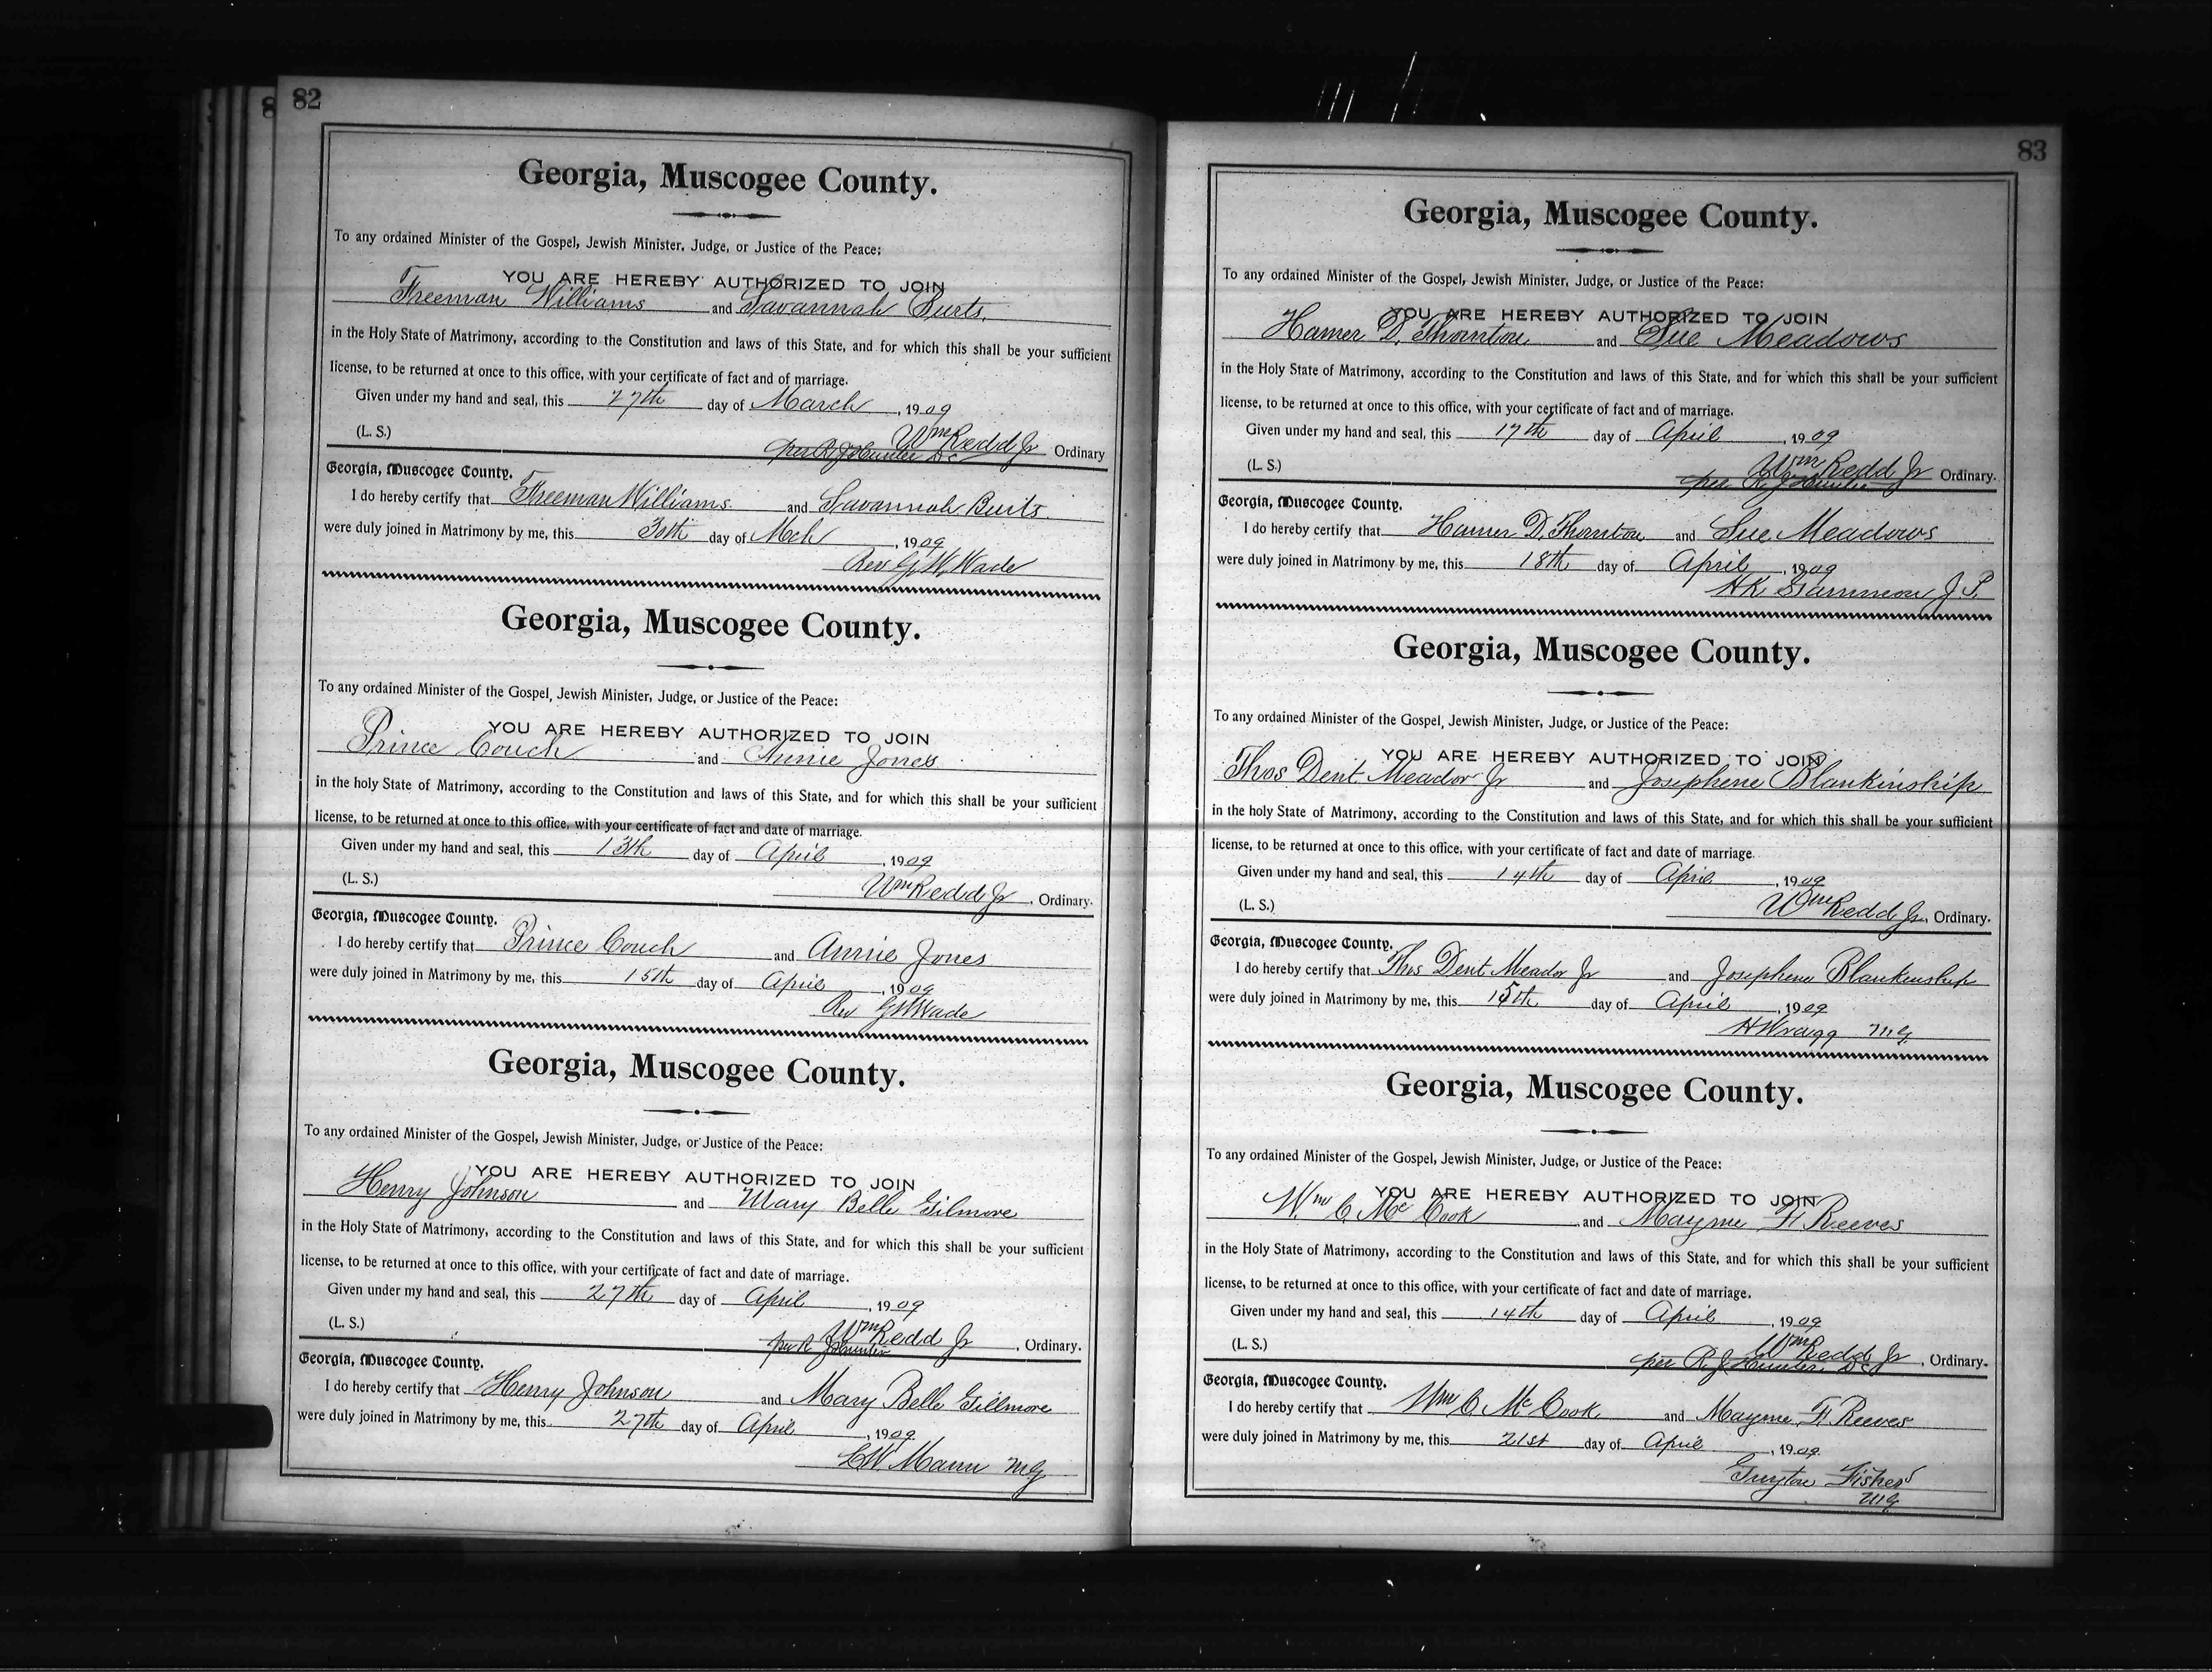 82
Georgia, Muscogee County.
To any ordained Minister of the Gospel, Jewish Minister, Judge, or Justice of the Peace:
YOU ARE HEREBY AUTHORIZED TO JOIN
Freeman Williams and Savannah Burts
in the Holy State of Matrimony, according to the Constitution and laws of this State, and for which this shall be your sufficient
license, to be returned at once to this office, with your certificate of fact and of marriage.
Given under my hand and seal, this 27th day of March, 1909
(L. S.) Wm Redd Jr Ordinary
per R J Hunter DC
Georgia, Muscogee County.
I do hereby certify that Freeman Williams and Savannah Burts
were duly joined in Matrimony by me, this 30th day of Mch, 1909
Rev G. W. Wade
Georgia, Muscogee County.
To any ordained Minister of the Gospel, Jewish Minister, Judge, or Justice of the Peace:
YOU ARE HEREBY AUTHORIZED TO JOIN
Prince Couch and Annie Jones
in the holy State of Matrimony, according to the Constitution and laws of this State, and for which this shall be your sufficient
license, to be returned at once to this office, with your certificate of fact and date of marriage.
Given under my hand and seal, this 13th day of April, 1909
(L. S.) Wm Redd Jr, Ordinary.
Georgia, Muscogee County.
I do hereby certify that Prince Couch and Annie Jones
were duly joined in Matrimony by me, this 15th day of April, 1909
Rev G W Wade
Georgia, Muscogee County.
To any ordained Minister of the Gospel, Jewish Minister, Judge, or Justice of the Peace:
YOU ARE HEREBY AUTHORIZED TO JOIN
Henry Johnson and Mary Belle Gilmore
in the Holy State of Matrimony, according to the Constitution and laws of this State, and for which this shall be your sufficient
license, to be returned at once to this office, with your certificate of fact and date of marriage.
Given under my hand and seal, this 27th day of April, 1909
(L. S.) Wm Redd Jr, Ordinary.
per R J Hunter
Georgia, Muscogee County.
I do hereby certify that Henry Johnson and Mary Belle Gillmore
were duly joined in Matrimony by me, this 27th day of April, 1909
Mann MG
83
Georgia, Muscogee County.
To any ordained Minister of the Gospel, Jewish Minister, Judge, or Justice of the Peace:
YOU ARE HEREBY AUTHORIZED TO JOIN
Hamer D. Thornton and Sue Meadows
in the Holy State of Matrimony, according to the Constitution and laws of this State, and for which this shall be your sufficient
license, to be returned at once to this office, with your certificate of fact and of marriage.
Given under my hand and seal, this 17th day of April, 1909
(L. S.) Wm Redd Jr Ordinary.
per R J Hunter
Georgia, Muscogee County.
I do hereby certify that Hamer D. Thornton and Sue Meadows
were duly joined in Matrimony by me, this 18th day of April, 1909
J. P.
Georgia, Muscogee County.
To any ordained Minister of the Gospel, Jewish Minister, Judge, or Justice of the Peace:
YOU ARE HEREBY AUTHORIZED TO JOIN
Thos Dent Meador Jr and Josephene Blankinship
in the holy State of Matrimony, according to the Constitution and laws of this State, and for which this shall be your sufficient
license, to be returned at once to this office, with your certificate of fact and date of marriage.
Given under my hand and seal, this 14th day of April, 1909
(L. S.) Wm Redd Jr, Ordinary.
Georgia, Muscogee County.
I do hereby certify that Thos Dent Meador Jr and Josephene Blankinship
were duly joined in Matrimony by me, this 15th day of April, 1909
H Wragg MG
Georgia, Muscogee County.
To any ordained Minister of the Gospel, Jewish Minister, Judge, or Justice of the Peace:
YOU ARE HEREBY AUTHORIZED TO JOIN
Wm C. McCook and Mayme H Reeves
in the Holy State of Matrimony, according to the Constitution and laws of this State, and for which this shall be your sufficient
license, to be returned at once to this office, with your certificate of fact and date of marriage.
Given under my hand and seal, this 14th day of April, 1909
(L. S.) Wm Redd Jr, Ordinary.
per R J Hunter, DC
Georgia, Muscogee County.
I do hereby certify that Wm C. McCook and Mayme H Reeves
were duly joined in Matrimony by me, this 21st day of April, 1909
Fisher
MG